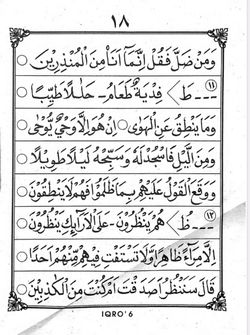 ١٨
وَمَنْ ضَلَّ فَقُلْ اِنَّمَآ اَنَا۠ مِنَ الْمُنْذِرِيْنَ ○
١١ --- طَ > فِدْيَةٌ طَعَامُ - حَلٰلًا طَيِّبًا
وَمَا يَنْطِقُ عَنِ الْهَوٰى ○ اِنْ هُوَ اِلَّا وَحْيٌ يُّوْحٰى ○
وَمِنَ الَّيْلِ فَاسْجُدْ لَهٗ وَسَبِّحْهُ لَيْلًا طَوِيْلًا ○
وَوَقَعَ الْقَوْلُ عَلَيْهِمْ بِمَا ظَلَمُوْا فَهُمْ لَا يَنْطِقُوْنَ ○
١٢ --- ظَ > هُمْ يَنْظُرُوْنَ - عَلَى الْاَرَآئِكِ يَنْظُرُوْنَ ○
اِلَّا مِرَآءً ظَاهِرًا وَّلَا تَسْتَفْتِ فِيْهِمْ مِّنْهُمْ اَحَدًا ○
قَالَ سَنَنْظُرُ اَصَدَقْتَ اَمْ كُنْتَ مِنَ الْكٰذِبِيْنَ ○
IQRO'6